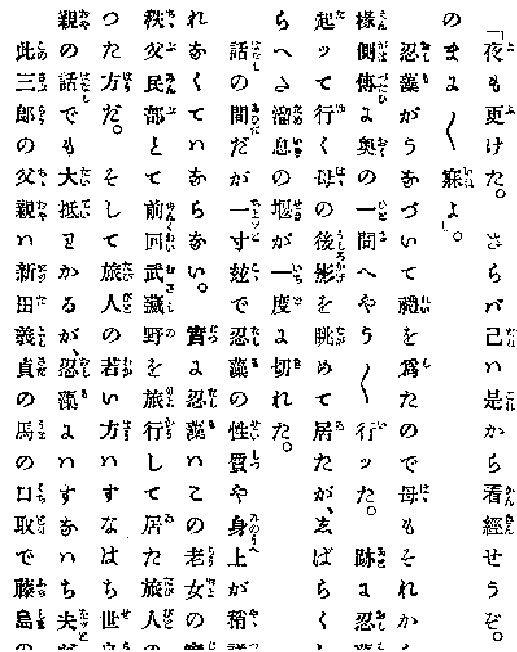 「夜も更けた。さらバ己ハ是から看經せうぞ。
のまゝ〳〵寐よ」。
忍藻がうなづいて禮を爲たので母もそれか
様側傳ひに奥の一間へやう〳〵行ッた。跡に忍
起ッて行く母の後影を眺めて居たが、ゑばらくし
らへた溜息の堰が一度に切れた。
話の間だが一寸玆で忍藻の性質や身上が稍詳
れなくてハならない。實に忍藻ハこの老女の
秩父民部とて前回武藏野を旅行して居た旅人の
つた方だ。そして旅人の若い方ハすなはち世
親の話でも大抵ゼかるが、忍藻にハすないち夫
此三郎の父親ハ新田義貞の馬の口取で藤島の